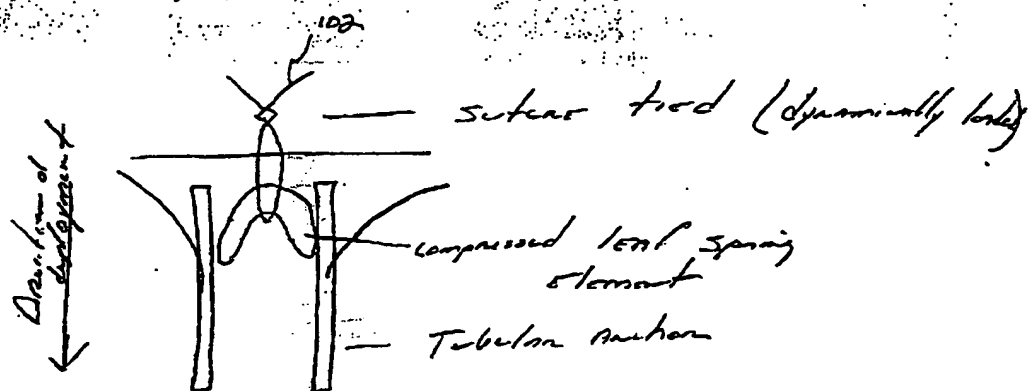 102
suture tied (dynamically loaded)
Direction of
deployment
compressed leaf spring
element
Tubular Anchor